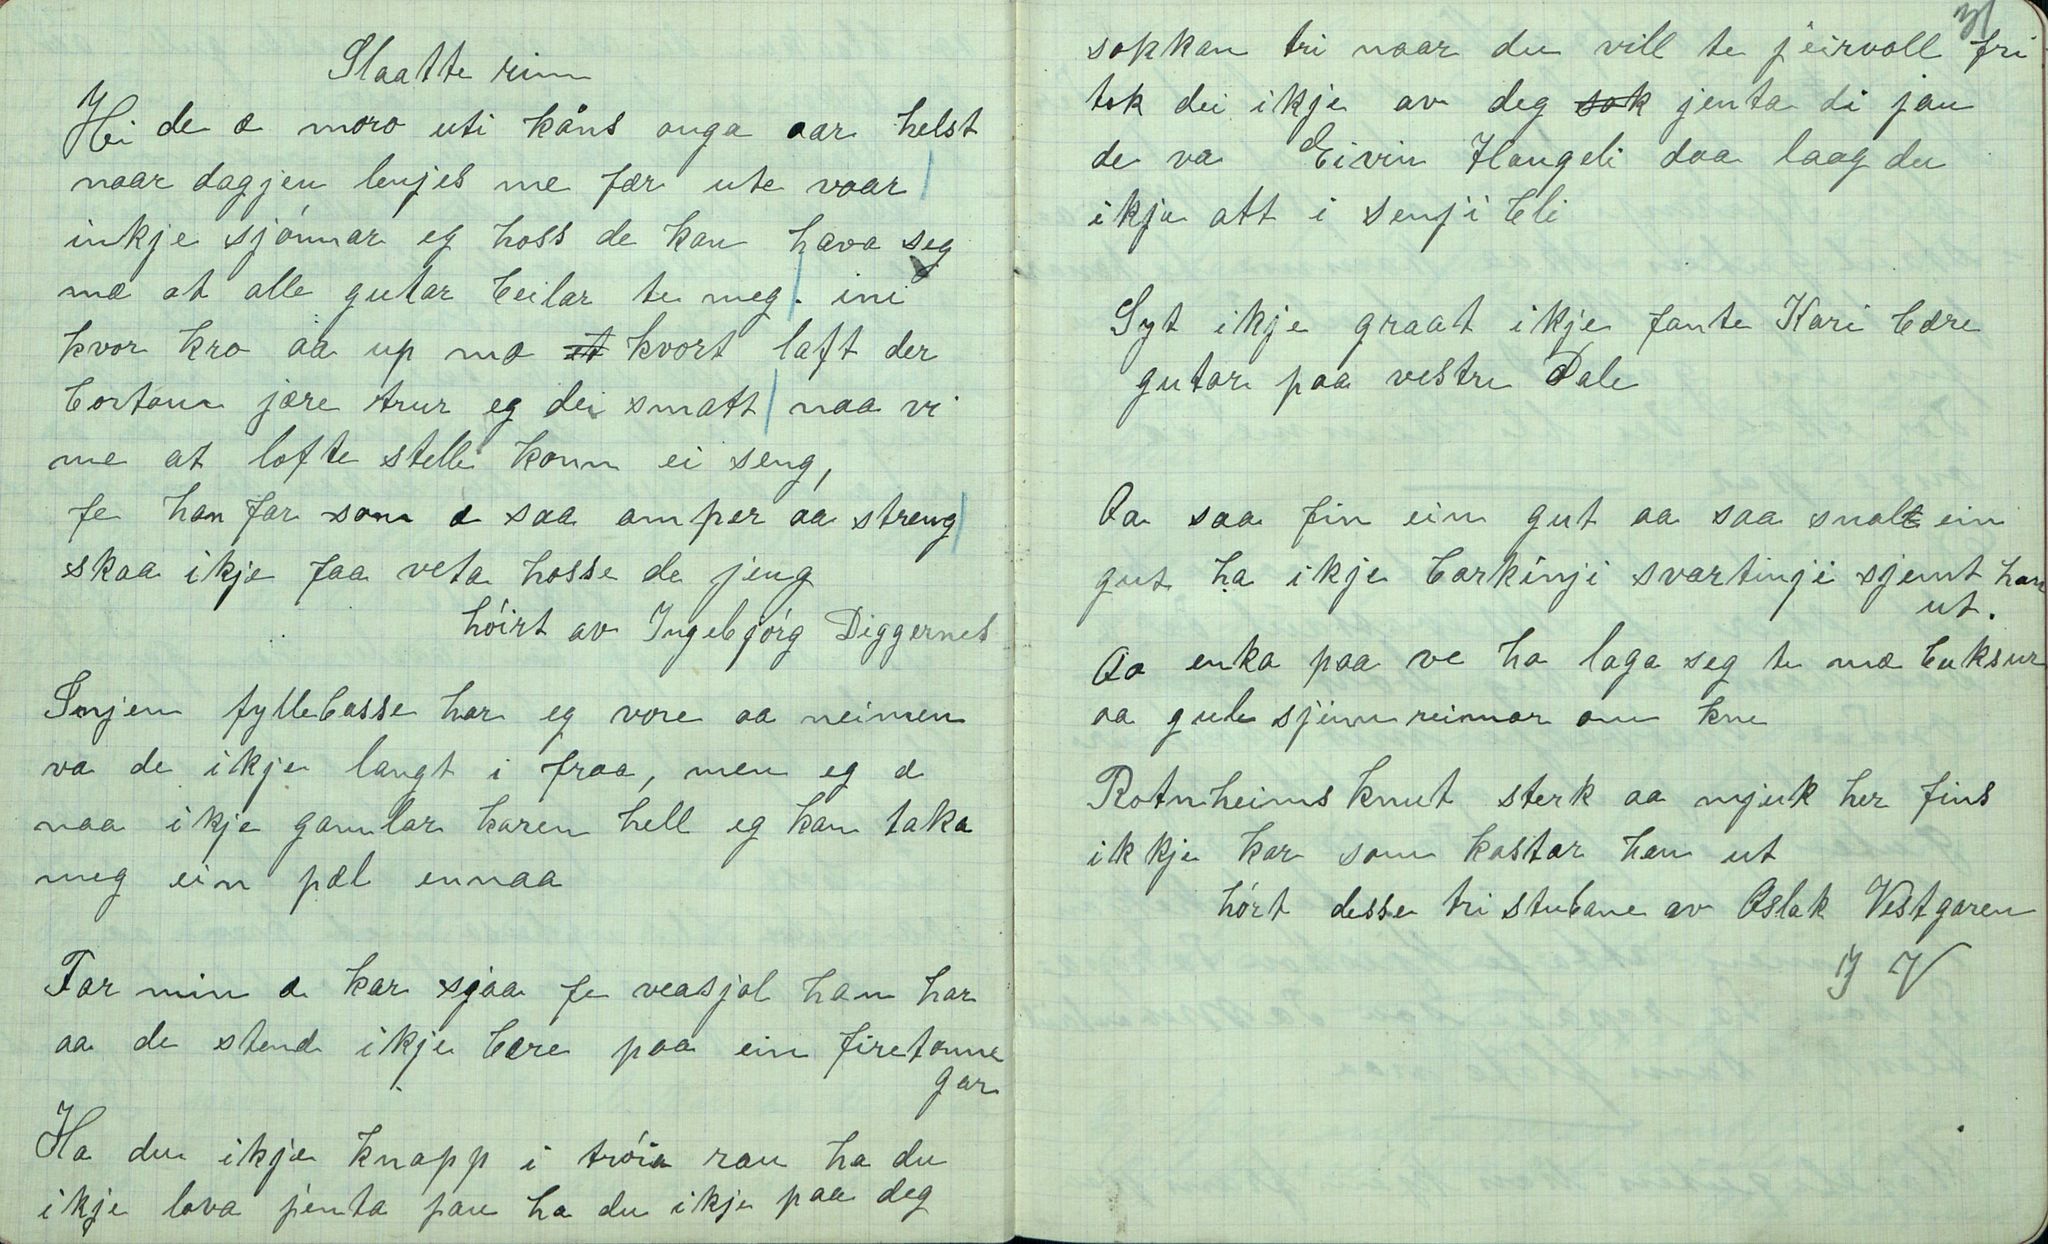 Slaatte rim
Hei de æ moro uti kåns onga aar helst
naar dagjen lenjes me fær ute vaar
inkje sjónnar eg hoss de kan hava seg
mæ at alle gutar beilar te meg. ini
kvor kro aa up mæ et kvort laft der
bortann jære trur eg dei smatt naa vi
me at lofte stelle konn ei seng,
fe han far som æ saa amper aa streng
skaa ikje faa veta hosse de jeng
hóirt av Ingebjórg Diggernes
Injen fyllebasse har eg vore aa neimen
va de ikje langt i fraa, men eg æ
naa ikje gamlar karen hell eg kan taka
meg ein pæl ennaa
Far min æ kar sjaa fe veasjol han har
aa de stend ikje bære paa ein firetonne
gar
Ha du ikje knapp i tróia rau ha du
ikje lova jenta pau ha du ikje paa deg
31
sokkan tri naar du vill te jeirvoll fri
tok dei ikje av deg sok jenta di jau
de va Eivin Haugeli daa laag du
ikje att i senji Eli
Syt ikje graat ikje fante Kari bære
gutar paa vestre Dale
Aa saa fin ein gut aa saa snält ein
gut ha ikje barkinji svartinji sjemt han
ut.
Aa enka paa ve ha laga seg te mæ buksur
aa gule sjinnreimar om kne
Rotnheims Knut sterk aa mjuk her fins
ikkje kar som kastar han ut
hórt desse tri stubane av Aslak Vestgaren
I V